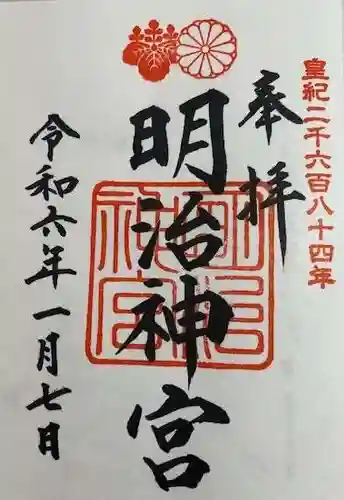 皇紀二千六百八十四年
奉拝
明治神宮
令和六年一月七日
明治神宮